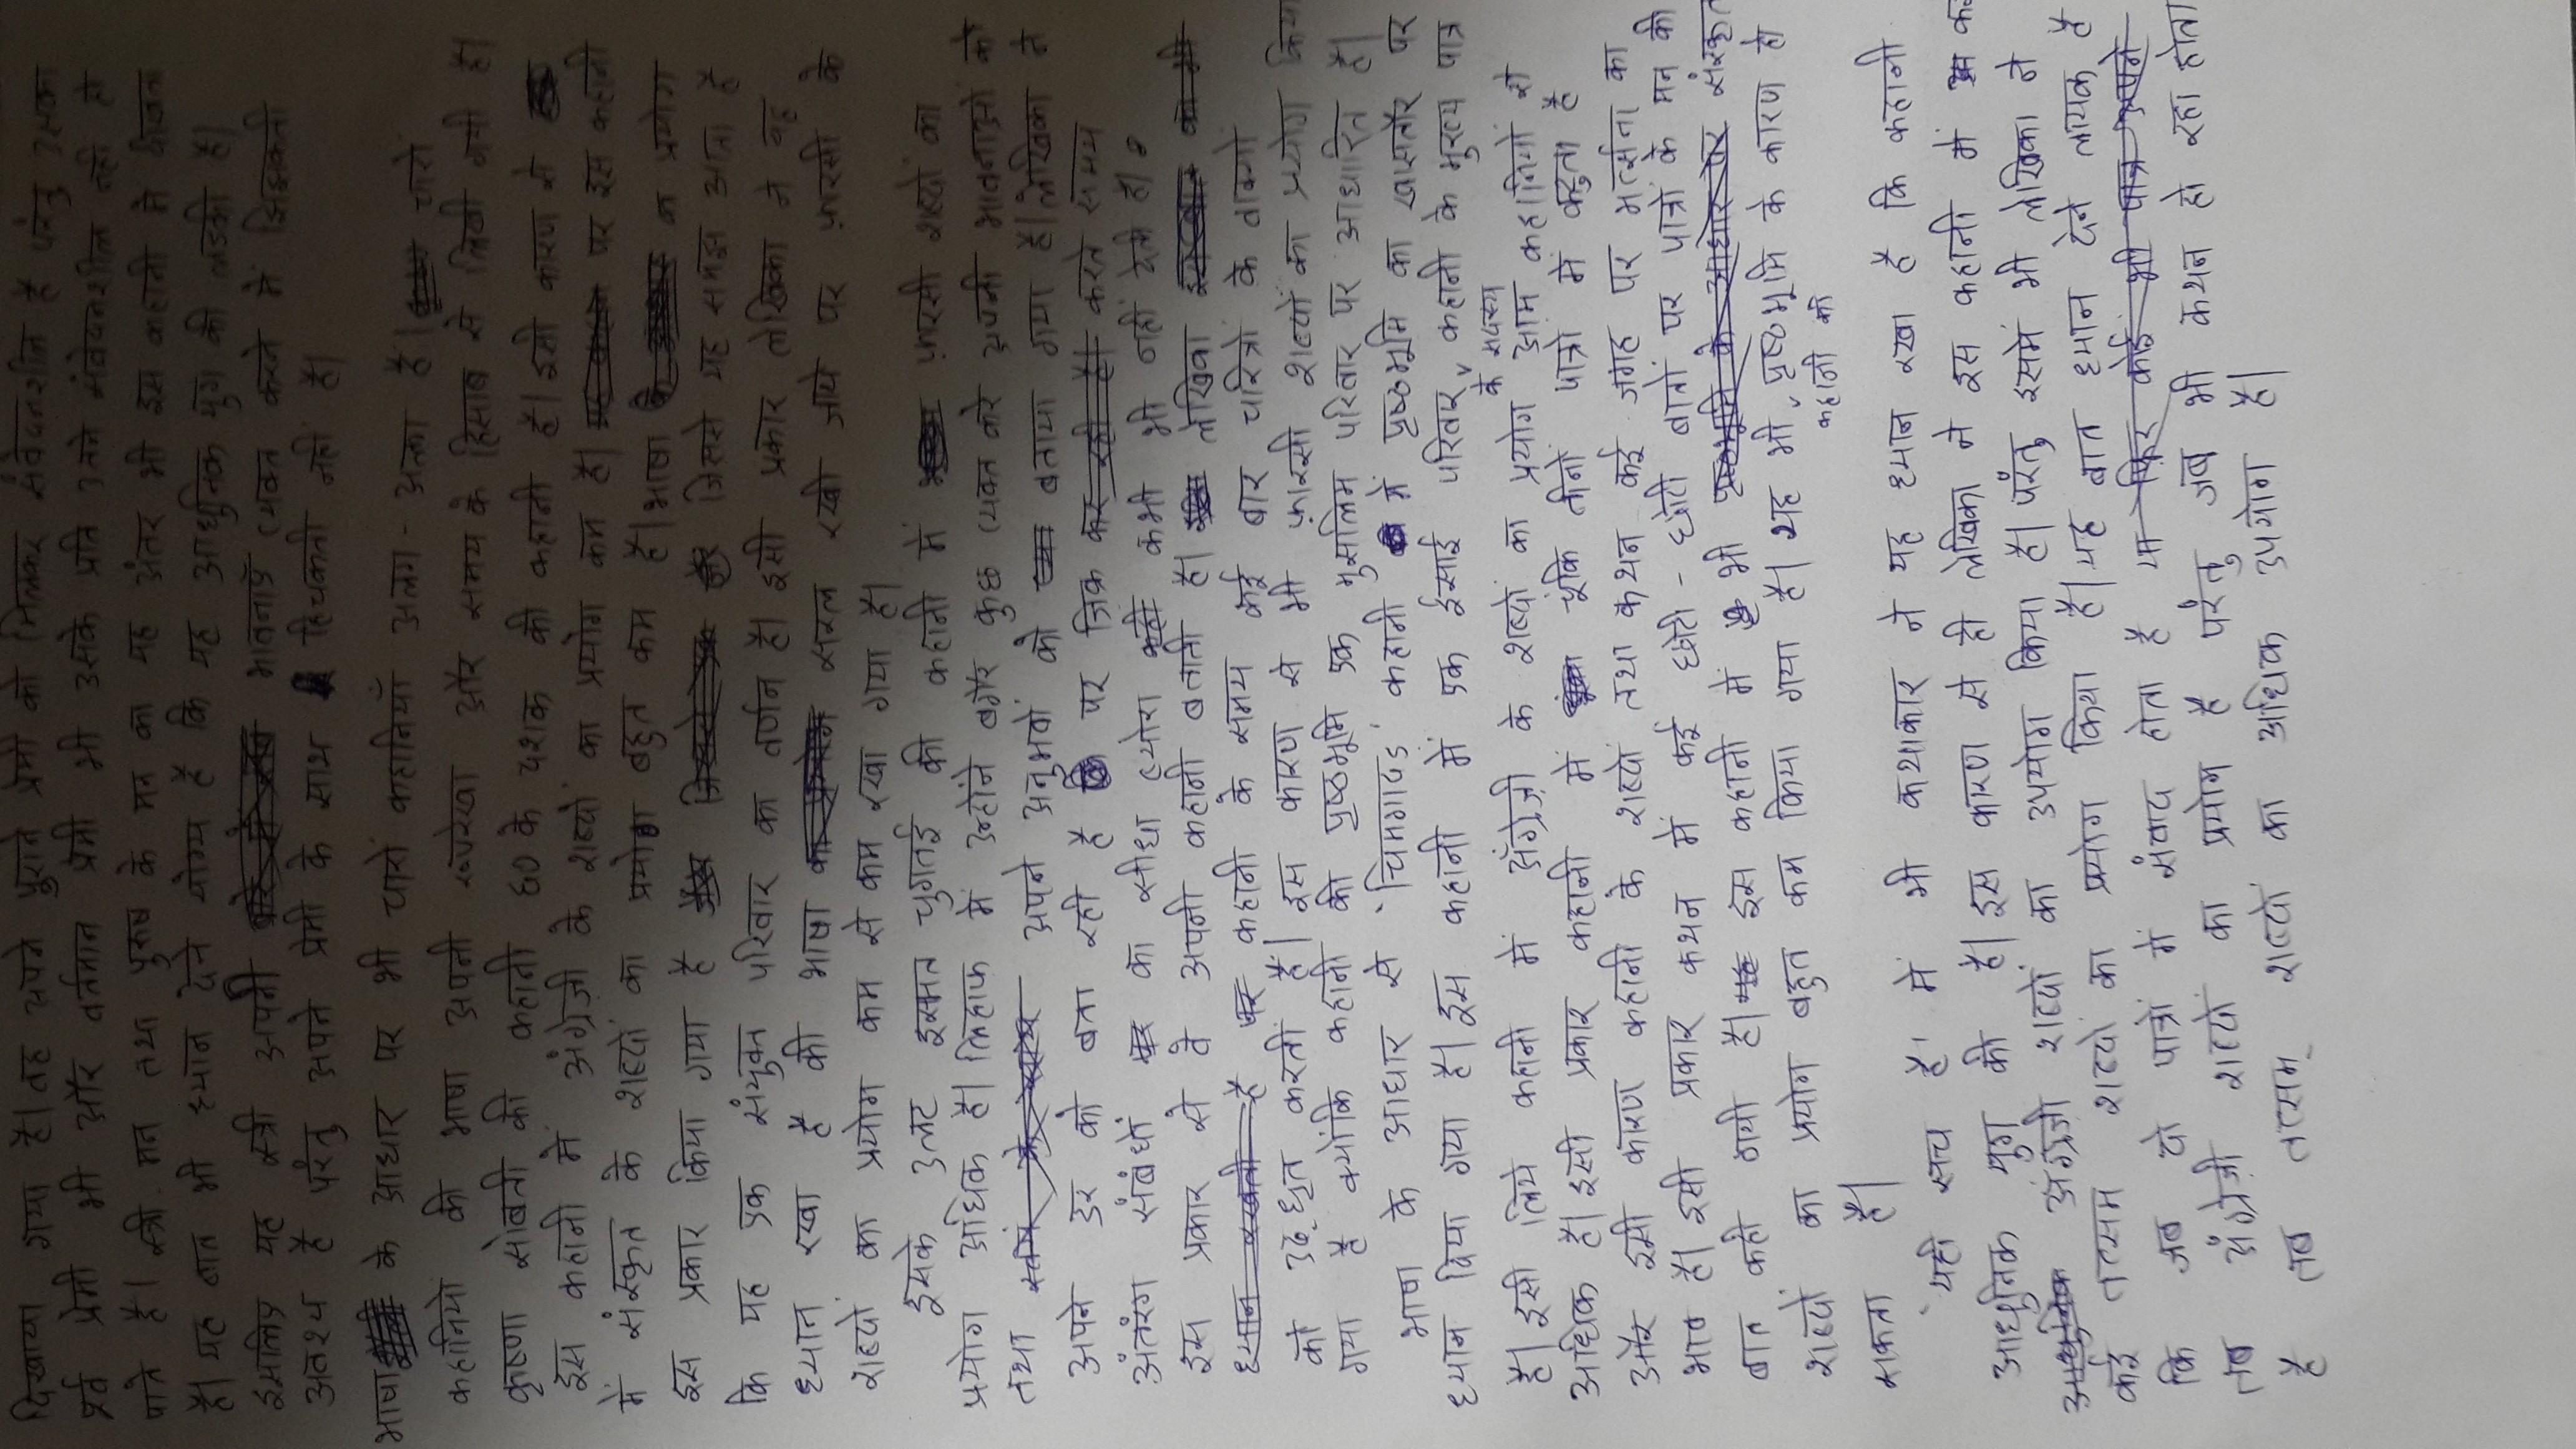 दिखाया गया है। वह अपने पुराने प्रेमी को मिलकर संवेदनशील है परंतु उसका
पूर्व प्रेमी भी और वर्तमान प्रेमी भी उसके प्रति उतने संवेदनशील नहीं हो
पाते है। स्त्री मन तथा पुरुष के मन का यह अंतर भी इस कहानी में दीखता
है। यह बात भी ध्यान देने योग्य है कि यह आधुनिक युग की लडकी है।
इसलिए यह स्त्री अपनी भावनाएँ व्यक्त करने में झिझकती
अवश्य है परंतु अपने प्रेमी के साथ हिचकती नहीं है।
भाषा के आधार पर भी चारों कहानियाँ अलग - अलग है। चारों
कहानियों की भाषा अपनी रूपरेखा और समय के हिसाब से लिखी गयी है।
कृष्णा सोबती की कहानी 60 के दशक की कहानी है। इसी कारण से
इस कहानी में अंग्रेज़ी के शब्दों का प्रयोग कम है। पर इस कहानी
में संस्कृत के शब्दों का प्रयोग बहुत कम है। भाषा का प्रयोग
इस प्रकार किया गया है जिससे यह समझ आता है
कि यह एक संयुक्त परिवार का वर्णन है। इसी प्रकार लेखिका ने यह
ध्यान रखा है की भाषा सरल रखी जाये पर फ़ारसी के
शब्दों का प्रयोग कम से कम रखा गया है।
इसके उलट इस्मत चुगतई की कहानी में फ़ारसी शब्दों का
प्रयोग अधिक है। लिहाफ़ में उन्होंने बगैर कुछ व्यक्त करे अपनी भावनाओं को
तथा अपने अनुभवों को बताया गया है। लेखिका ने
अपने डर को बता रही है पर जिक्र कर रही है। करते समय
अंतरंग संबंधों का सीधा ब्योरा कभी भी नहीं देती है।
इस प्रकार से वे अपनी कहानी बताती है। लेखिका
ध्यान रखती है पर कहानी के समय कई बार चरित्रों के वाक्यों
को उद्धृत करतीं हैं। इस कारण से भी फ़ारसी शब्दों का प्रयोग किया
गया है क्योंकि कहानी की पृष्ठभूमि एक मुसलिम परिवार पर आधारित है।
भाषा के आधार से 'चिमगादड' कहानी में पृष्ठभूमि का खासतौर पर
ध्यान दिया गया है। इस कहानी में एक ईसाई परिवार के सदस्य कहानी के मुख्य पात्र
है। इसी लिये कहानी में अंग्रेज़ी के शब्दों का प्रयोग आम कहानियों से
अधिक है। इसी प्रकार कहानी में चूंकि तीनों पात्रों में कटुता है
और इसी कारण कहानी के शब्दों तथा कथन कई जगह पर भर्त्सना का
भाव है। इसी प्रकार कथन में कई छोटी - छोटी बातों पर पात्रों के मन की
बात कही गयी है। इस कहानी में भी पृष्ठभूमि के आधार पर संस्कृत
शब्दों का प्रयोग बहुत कम किया गया है। यह भी कहानी की पृष्ठभूमि के कारण हो
सकता है।
'यही सच है' में भी कथाकार ने यह ध्यान रखा है कि कहानी
आधुनिक युग की है। इस कारण से ही लेखिका ने इस कहानी में कई
आधुनिक अंग्रेज़ी शब्दों का उपयोग किया है। परंतु इसमें भी लेखिका ने
कई तत्सम शब्दों का प्रयोग किया है। यह बात ध्यान देने लायक है
कि जब दो पात्रों में संवाद होता है या फिर कोई भी पात्र अपने
तब अंग्रेज़ी शब्दों का प्रयोग है परंतु जब भी कथन हो रहा होता
है तब तत्सम् शब्दों का अधिक उपयोग है।